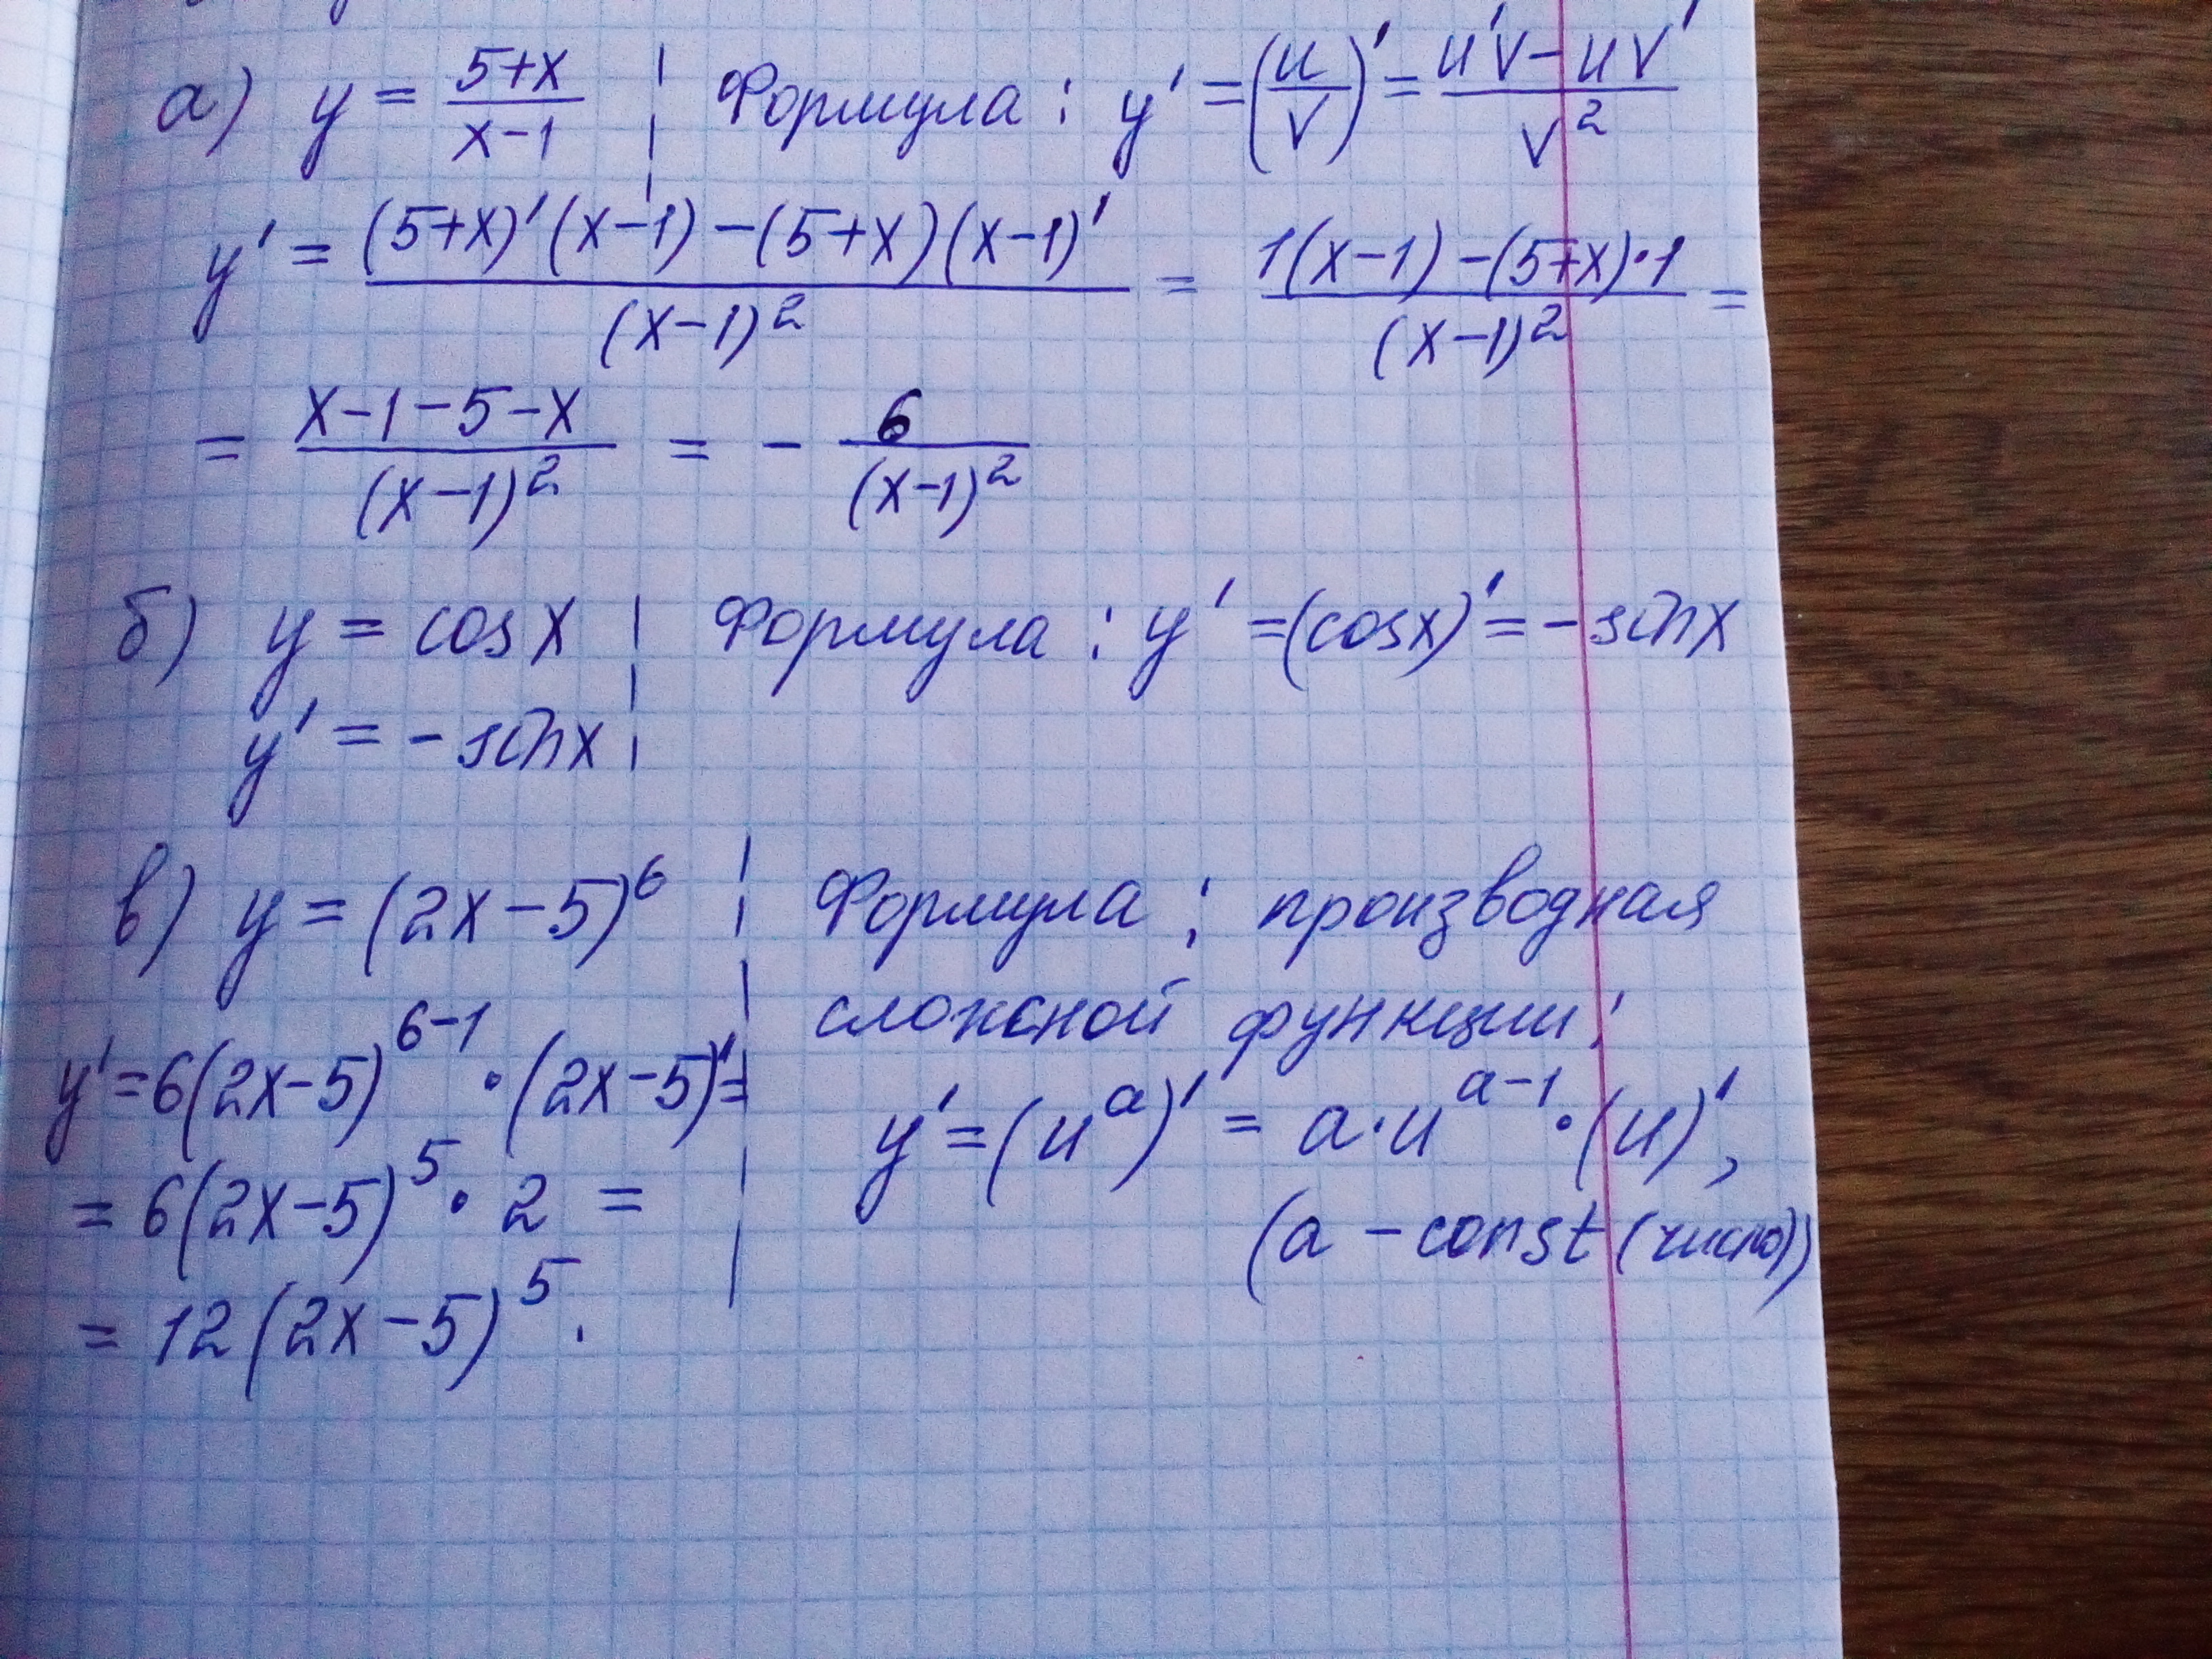 а) y = (5+x)/(x-1) ¦ Формула: y' = (u/v)' = (u'v - uv')/v²
y' = ((5+x)'(x-1) - (5+x)(x-1)')/(x-1)² = (1(x-1) - (5+x)·1)/(x-1)² =
= (x-1-5-x)/(x-1)² = - 6/(x-1)²
б) y = cosx ¦ Формула: y' = (cosx)' = -sinx
y' = -sinx ¦
в) y = (2x-5)⁶ ¦ Формула: производная
сложной функции:
y' = 6(2x-5)⁶⁻¹ · (2x-5)' =
y' = (uᵃ)' = a·uᵃ⁻¹·(u)',
= 6(2x-5)⁵ · 2 =
(a - const (число))
= 12(2x-5)⁵.